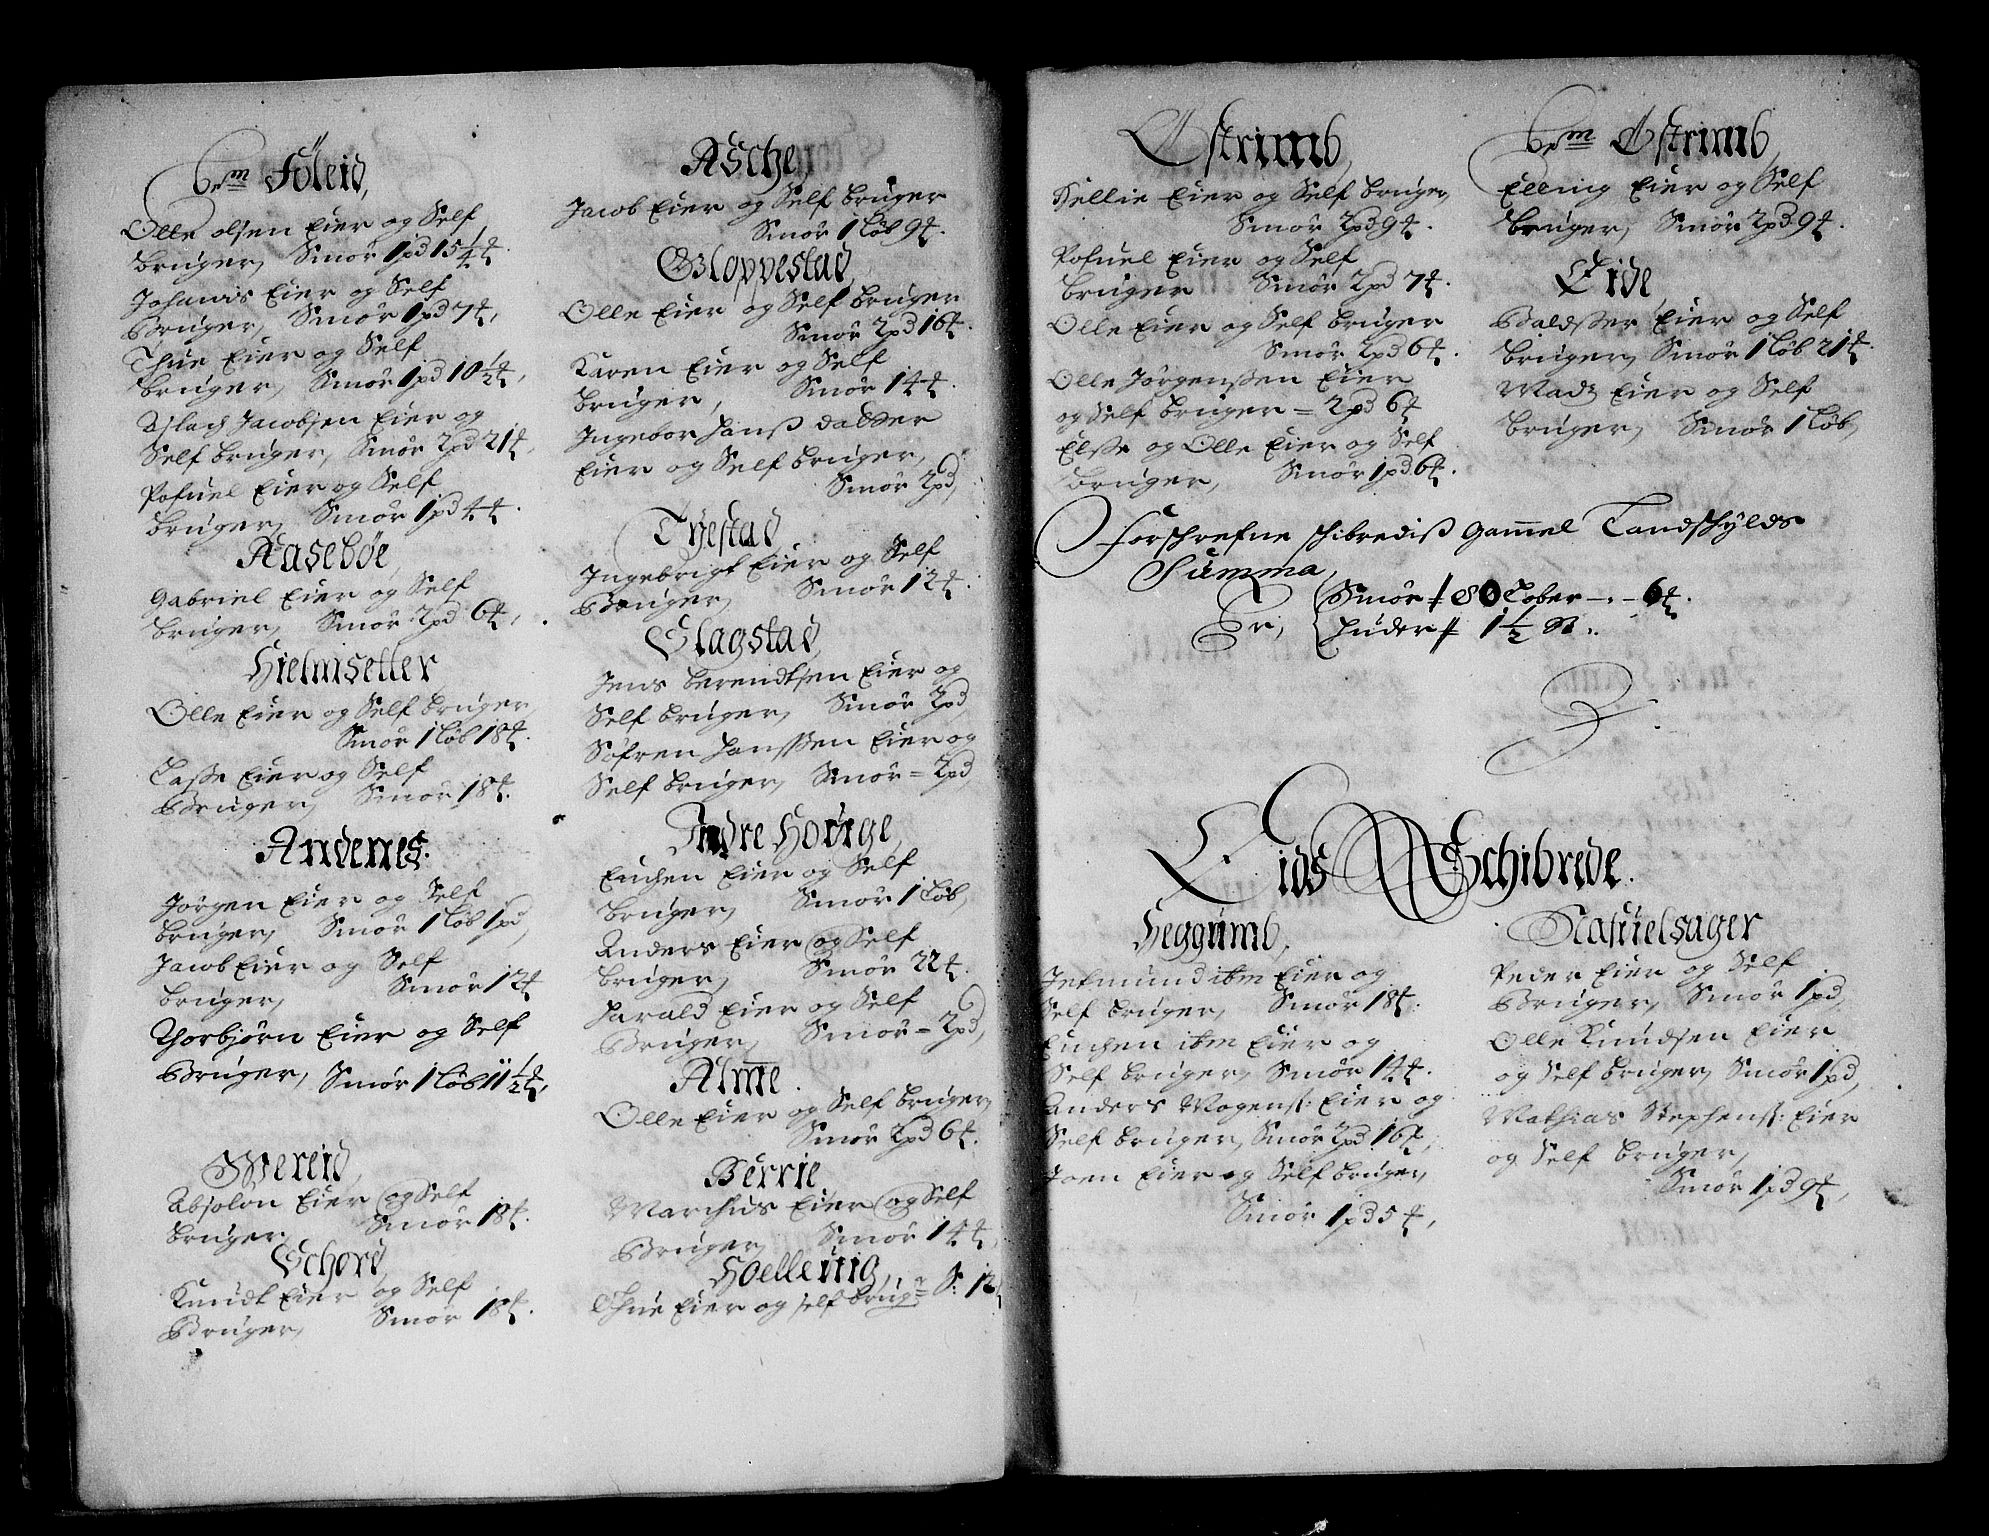 Ibm Föleid,
Olle olsen Eier og Self
bruger, Smör 1 pd 15 1/2 ℔
Johanis Eier og Self
Bruger, Smör 1 pd 7 ℔,
Thue Eier og Self
bruger, Smör 1 pd 10 1/2 ℔,
Aslach Jacobsen Eier og
Self bruger, Smör 2 pd 21 ℔,
Pofuel Eier og Self
bruger, Smör 1 pd 4 ℔.
Aaseböe,
Gabriel Eier og Self
bruger, Smör 2 pd 6 ℔,
Hielmsetter
Olle Eier og Self bruger,
Smör 1 Löb 18 ℔.
Lasse Eier og Self
Bruger, Smör 18 ℔.
Andenes.
Jörgen Eier og Self
bruger, Smör 1 Löb 1 pd,
Jacob Eier og Self
bruger, Smör 12 ℔
Thorbjörn Eier og Self
Bruger, Smör 1 Löb 11 1/2 ℔,
Wereid,
Absolon Eier og Self
bruger, Smör 18 ℔.
Schord,
Knudt Eier og Self
Bruger, Smör 18 ℔.
Asche,
Jacob Eier og Self bruger
Smör 1 Löb 9 ℔.
Gloppestad,
Olle Eier og Self bruger
Smör 2 pd 16 ℔.
Karen Eier og Self
bruger, Smör 14 ℔.
Ingebor Hansß datter
Eier og Self bruger,
Smör 2 pd,
Tyestad
Ingebrigt Eier og Self
Bruger, Smör 12 ℔.
Slagstad,
Jens berendtsen Eier og
Self bruger, Smör 2 pd,
Söfren Hanssen Eier og
Self bruger, Smör = 2 pd,
Indre Hovrge,
Enchen Eier og Self
bruger, Smör 1 Löb,
Anders Eier og Self
bruger, Smör 22 ℔.
Harald Eier og Self
Bruger, Smör = 2 pd,
Alme.
Olle Eier og Self bruger,
Smör 2 pd 6 ℔.
Berrie,
Marchus Eier og Self
Bruger, Smör 14 ℔,
Hoellevig,
Thue Eier og self brug: S: 12
Ostrimb,
Hellie Eier og Self bruger,
Smör 2 pd 9 ℔.
Pofuel Eier og Self
bruger Smör 2 pd 7 ℔.
Olle Eier og Self bruger
Smör 2 pd 6 ℔.
Olle Jörgenssen Eier
og Self bruger = 2 pd 6 ℔
Elsse og Olle Eier og Self
bruger, Smör 1 pd 6 ℔.
Ibm Ostrimb,
Elling Eier og Self
bruger, Smör 2 pd 9 ℔.
Eide
Baldsser Eier og Self
bruger, Smör 1 Löb 21 ℔.
Madz Eier og Self
bruger, Smör 1 Löb,
Forschrefne schibrediß gammel Landschylds
Summa,
Er, Smör # 80 Löber - . - 6 ℔.
Huder # 1 1/2 St:.
Eids Schibrede.
Heggumb,
Jefmund ibm Eier og
Self bruger, Smör 18 ℔.
Enchen ibm Eier og
Self bruger, Smör 14 ℔.
Anders Mogens: Eier og
Self bruger, Smör 2 pd 16 ℔,
Joen Eier og Self bruger,
Smör 1 pd 5 ℔,
Nafuelsager
Peder Eier og Self
Bruger, Smör 1 pd,
Olle Knudsen Eier
og Self bruger, Smör 1 pd,
Mathias Stephens: Eier
og Self bruger,
Smör 1 pd 9 ℔,